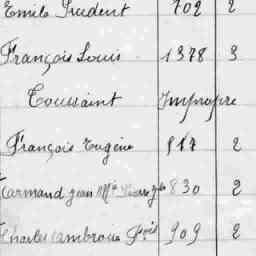 Emile Prudent 702 2
François Louis 1378 3
Toussaint Impropre
François Eugène 817 2
Jean 830 2
Charles Ambroise 909 2